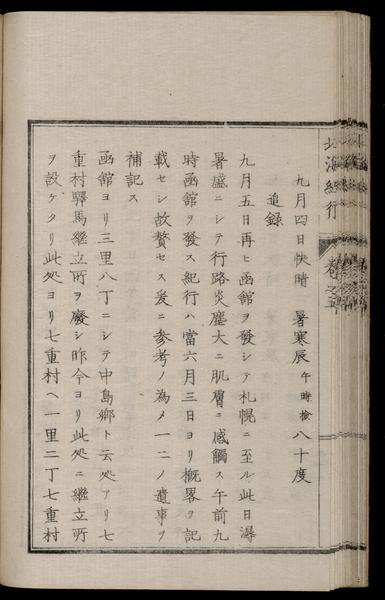 北海紀行 巻之五
九月四日快晴 暑寒辰午時檢八十度
追録
九月五日再ヒ函館ヲ發シテ札幌ニ至ル此日溽
暑盛ニシテ行路炎塵大ニ肌膚ニ感觸ス午前九
時函館ヲ發ス紀行ハ當六月三日ヨリ概畧ヲ記
載セシ故贅セス爰ニ参考ノ為メ一二ノ遺事ヲ
補記ス
函館ヨリ三里八丁ニシテ中島鄉ト云処アリ七
重村驛馬繼立所ヲ廢シ昨今ヨリ此処ニ繼立所
ヲ設ケタリ此処ヨリ七重村ヘ一里二丁七重村